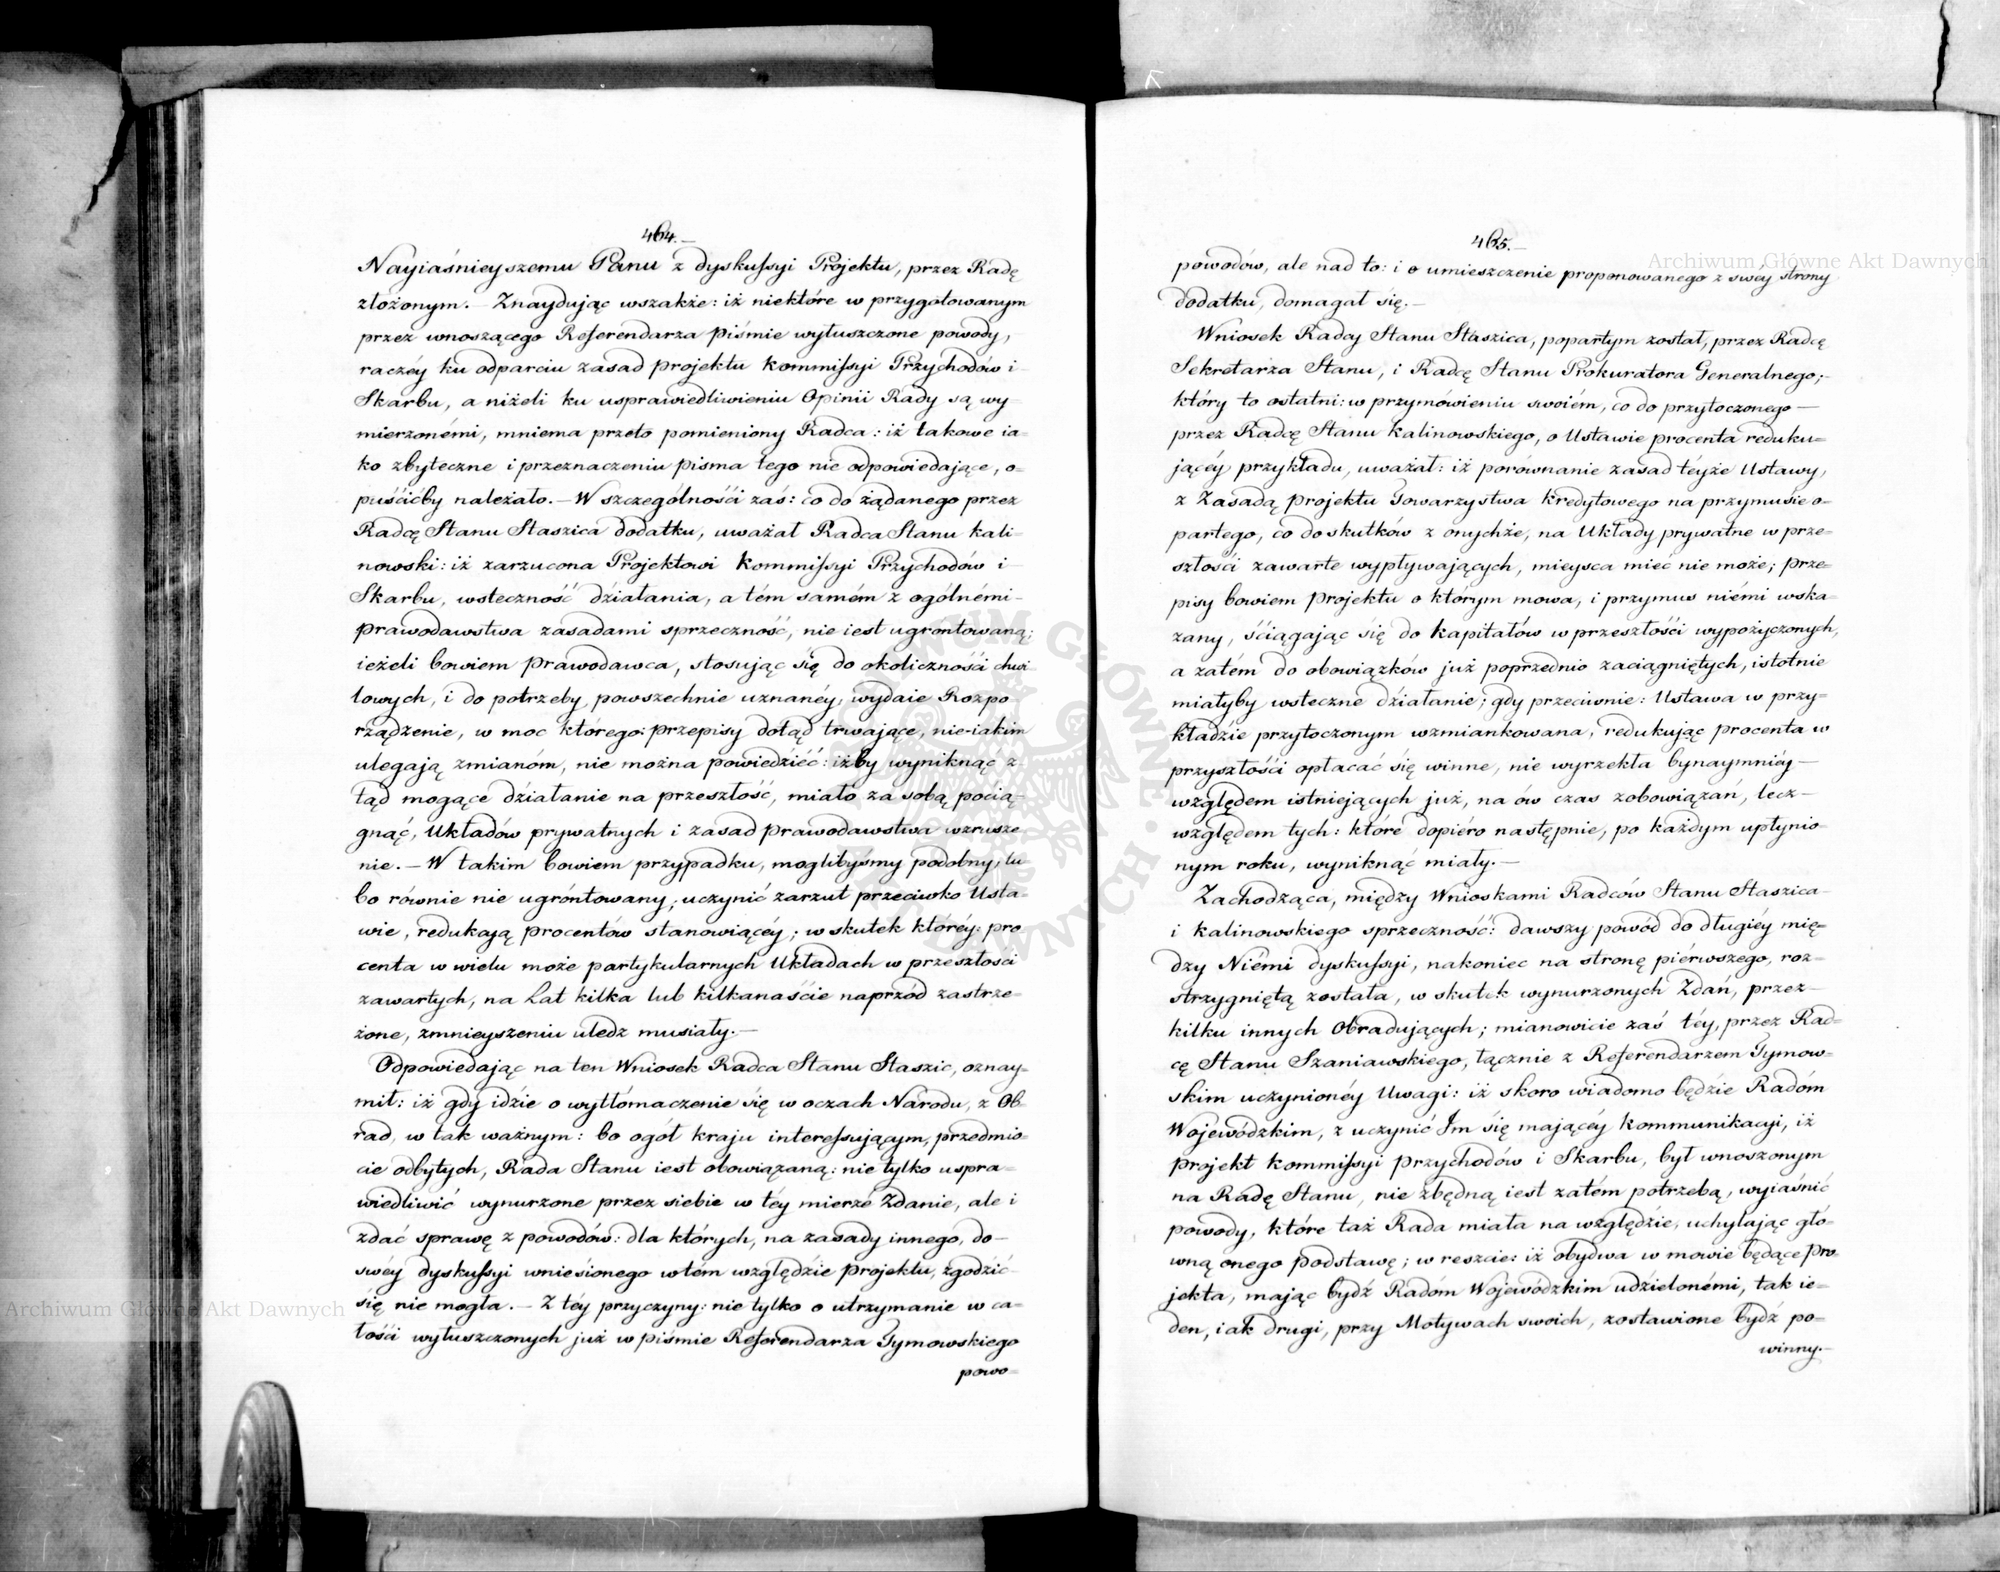 464.—
Nayiaśnieyszemu Panu z dyskussyi Projektu, przez Radę
złożonym. — Znaydując wszakże: iż niektóre w przygotowanym
przez wnoszącego Referendarza piśmie wyłuszczone powody,
raczéy ku odparciu zasad projektu Kommissyi Przychodów i
Skarbu, a niżeli ku usprawiedliwieniu Opinii Rady są wy=
mierzonémi, mniema przeto pomieniony Radca: iż takowe ia=
ko zbyteczne i przeznaczeniu pisma tego nie odpowiedające, o=
puśćićby należało. — W szczególnośći zaś: co do żądanego przez
Radcę Stanu Staszica dodatku, uważał Radca Stanu Kali=
nowski: iż zarzucona Projektowi Kommissyi Przychodów i
Skarbu, wsteczność działania, a tém samém z ogólnémi
prawodawstwa zasadami sprzeczność, nie iest ugrontowaną;
ieżeli bowiem prawodawca, stosując się do okolicznośći chwi
lowych, i do potrzeby powszechnie uznanéy, wydaie Rozpo=
rządzenie, w moc którego: przepisy dotąd trwające, nie-iakim
ulegają zmianóm, nie można powiedzićć: iżby wyniknąć z=
tąd mogące działanie na przeszłość, miało za sobą pocią=
gnąć, Układów prywatnych i zasad prawodawstwa wzrusze=
nie. — W takim bowiem przypadku, moglibyśmy podobny, lu=
bo równie nie ugróntowany, uczynić zarzut przeciwko Usta=
wie, redukają procentów stanowiącéy; w skutek któréy: pro
centa w wielu może partykularnych Układach w przeszłości
zawartych, na Lat kilka lub kilkanaście naprzód zastrze=
żone, zmnieyszeniu uledz musiały. —
Odpowiedając na ten Wniosek Radca Stanu Staszic, oznay=
mił: iż gdy idzie o wytłómaczenie się w oczach Narodu, z Ob=
rad, w tak ważnym: bo ogół kraju interessującym, przedmio=
cie odbytych, Rada Stanu iest obowiązaną: nie tylko uspra=
wiedliwić wynurzone przez siebie w téy mierze Zdanie, ale i
zdać sprawę z powodów: dla których, na zasady innego, do—
swéy dyskussyi wniesionego w tém względzie projektu, zgodzić
się nie mogła. — Z téy przyczyny: nie tylko o utrzymanie w ca=
łośći wyłuszczonych już w piśmie Referendarza Tymowskiego
powo=
465.—
powodów, ale nad to: i o umieszczenie proponowanego z swéy strony
dodatku, domagał się. —
Wniosek Radcy Stanu Staszica, popartym został, przez Radcę
Sekretarza Stanu, i Radcę Stanu Prokuratora Generalnego;—
który to ostatni: w przymówieniu swoiém, co do przytoczonego —
przez Radcę Stanu Kalinowskiego, o Ustawie procenta reduku=
jącéy przykładu, uważał: iż porównanie zasad téyże Ustawy,
z Zasadą projektu Towarzystwa kredytowego na przymusie o=
partego, co do skutków z onychże, na Układy prywatne w prze=
szłości zawarte wypływających, mieysca mieć nie może; prze=
pisy bowiem projektu o którym mowa, i przymus niémi wska=
zany, śćiągając się do kapitałów w przeszłośći wypożyczonych,
a zatém do obowiązków już poprzednio zaciągniętych, istotnie
miałyby wsteczne działanie; gdy przeciwnie: Ustawa w przy=
kładzie przytoczonym wzmiankowana, redukując procenta w
przyszłośći opłacać się winne, nie wyrzekła bynaymniéy —
względem istniejących już, na ów czas zobowiązań, lecz—
względem tych: które dopiéro następnie, po każdym upłynio=
nym roku, wyniknąć miały. —
Zachodząca, między Wnioskami Radców Stanu Staszica
i Kalinowskiego sprzeczność: dawszy powód do długiéy mię=
dzy Niémi dyskussyi, nakoniec na stronę piérwszego, roz=
strzygniętą została, w skutek wynurzonych Zdań, przez—
kilku innych Obradujących; mianowicie zaś téy, przez Rad=
cę Stanu Szaniawskiego, łącznie z Referendarzem Tymow=
skim uczynionéy Uwagi: iż skoro wiadomo będzie Radóm
Wojewódzkim, z uczynić Im się mającéy kommunikacyi, iż
projekt Kommissyi Przychodów i Skarbu, był wnoszonym
na Radę Stanu, nie zbędną iest zatém potrzebą, wyiaśnić
powody, które taż Rada miała na względzie, uchylając głó=
wną onego podstawę; w reszcie: iż obydwa w mowie będące pro=
jekta, mając bydź Radóm Wojewódzkim udzielonémi, tak ie=
den, iak drugi, przy Motywach swoich, zostawione bydź po=
winny. —
Archiwum Główne Akt Dawnych
Archiwum Główne Akt Dawnych